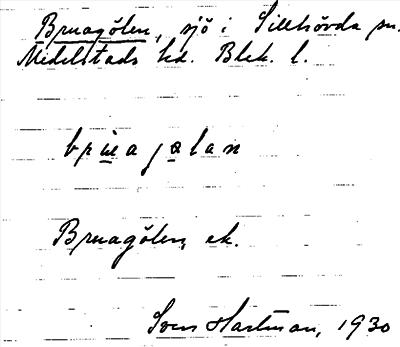 Bruagölen, sjö i Sillhövda sn.
Medelstads hd. Blek. l.
Bruagölen, ek.
Sven Hartman, 1930